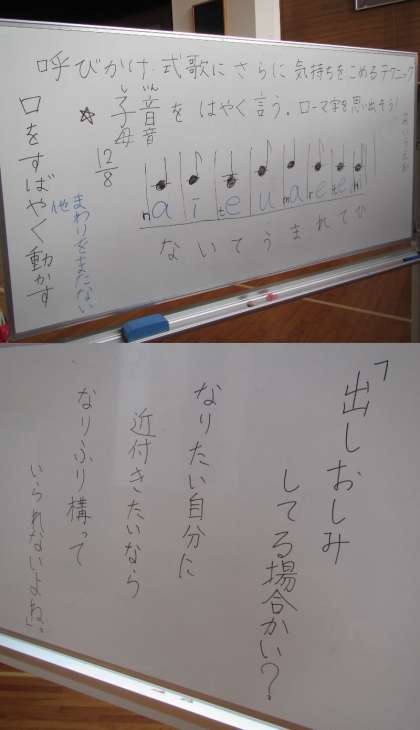 呼びかけ式歌にさらに気持ちをこめるテクニック
☆子音をはやく言う。ローマ字を思い出そう!
しいん
母音
口をすばやく動かす
他
まわりをまたない
12/8
na i te u ma re te hi
ないてうまれてひ
「出しおしみ
してる場合かい?
なりたい自分に
近付きたいなら
なりふり構って
いられないよね。」